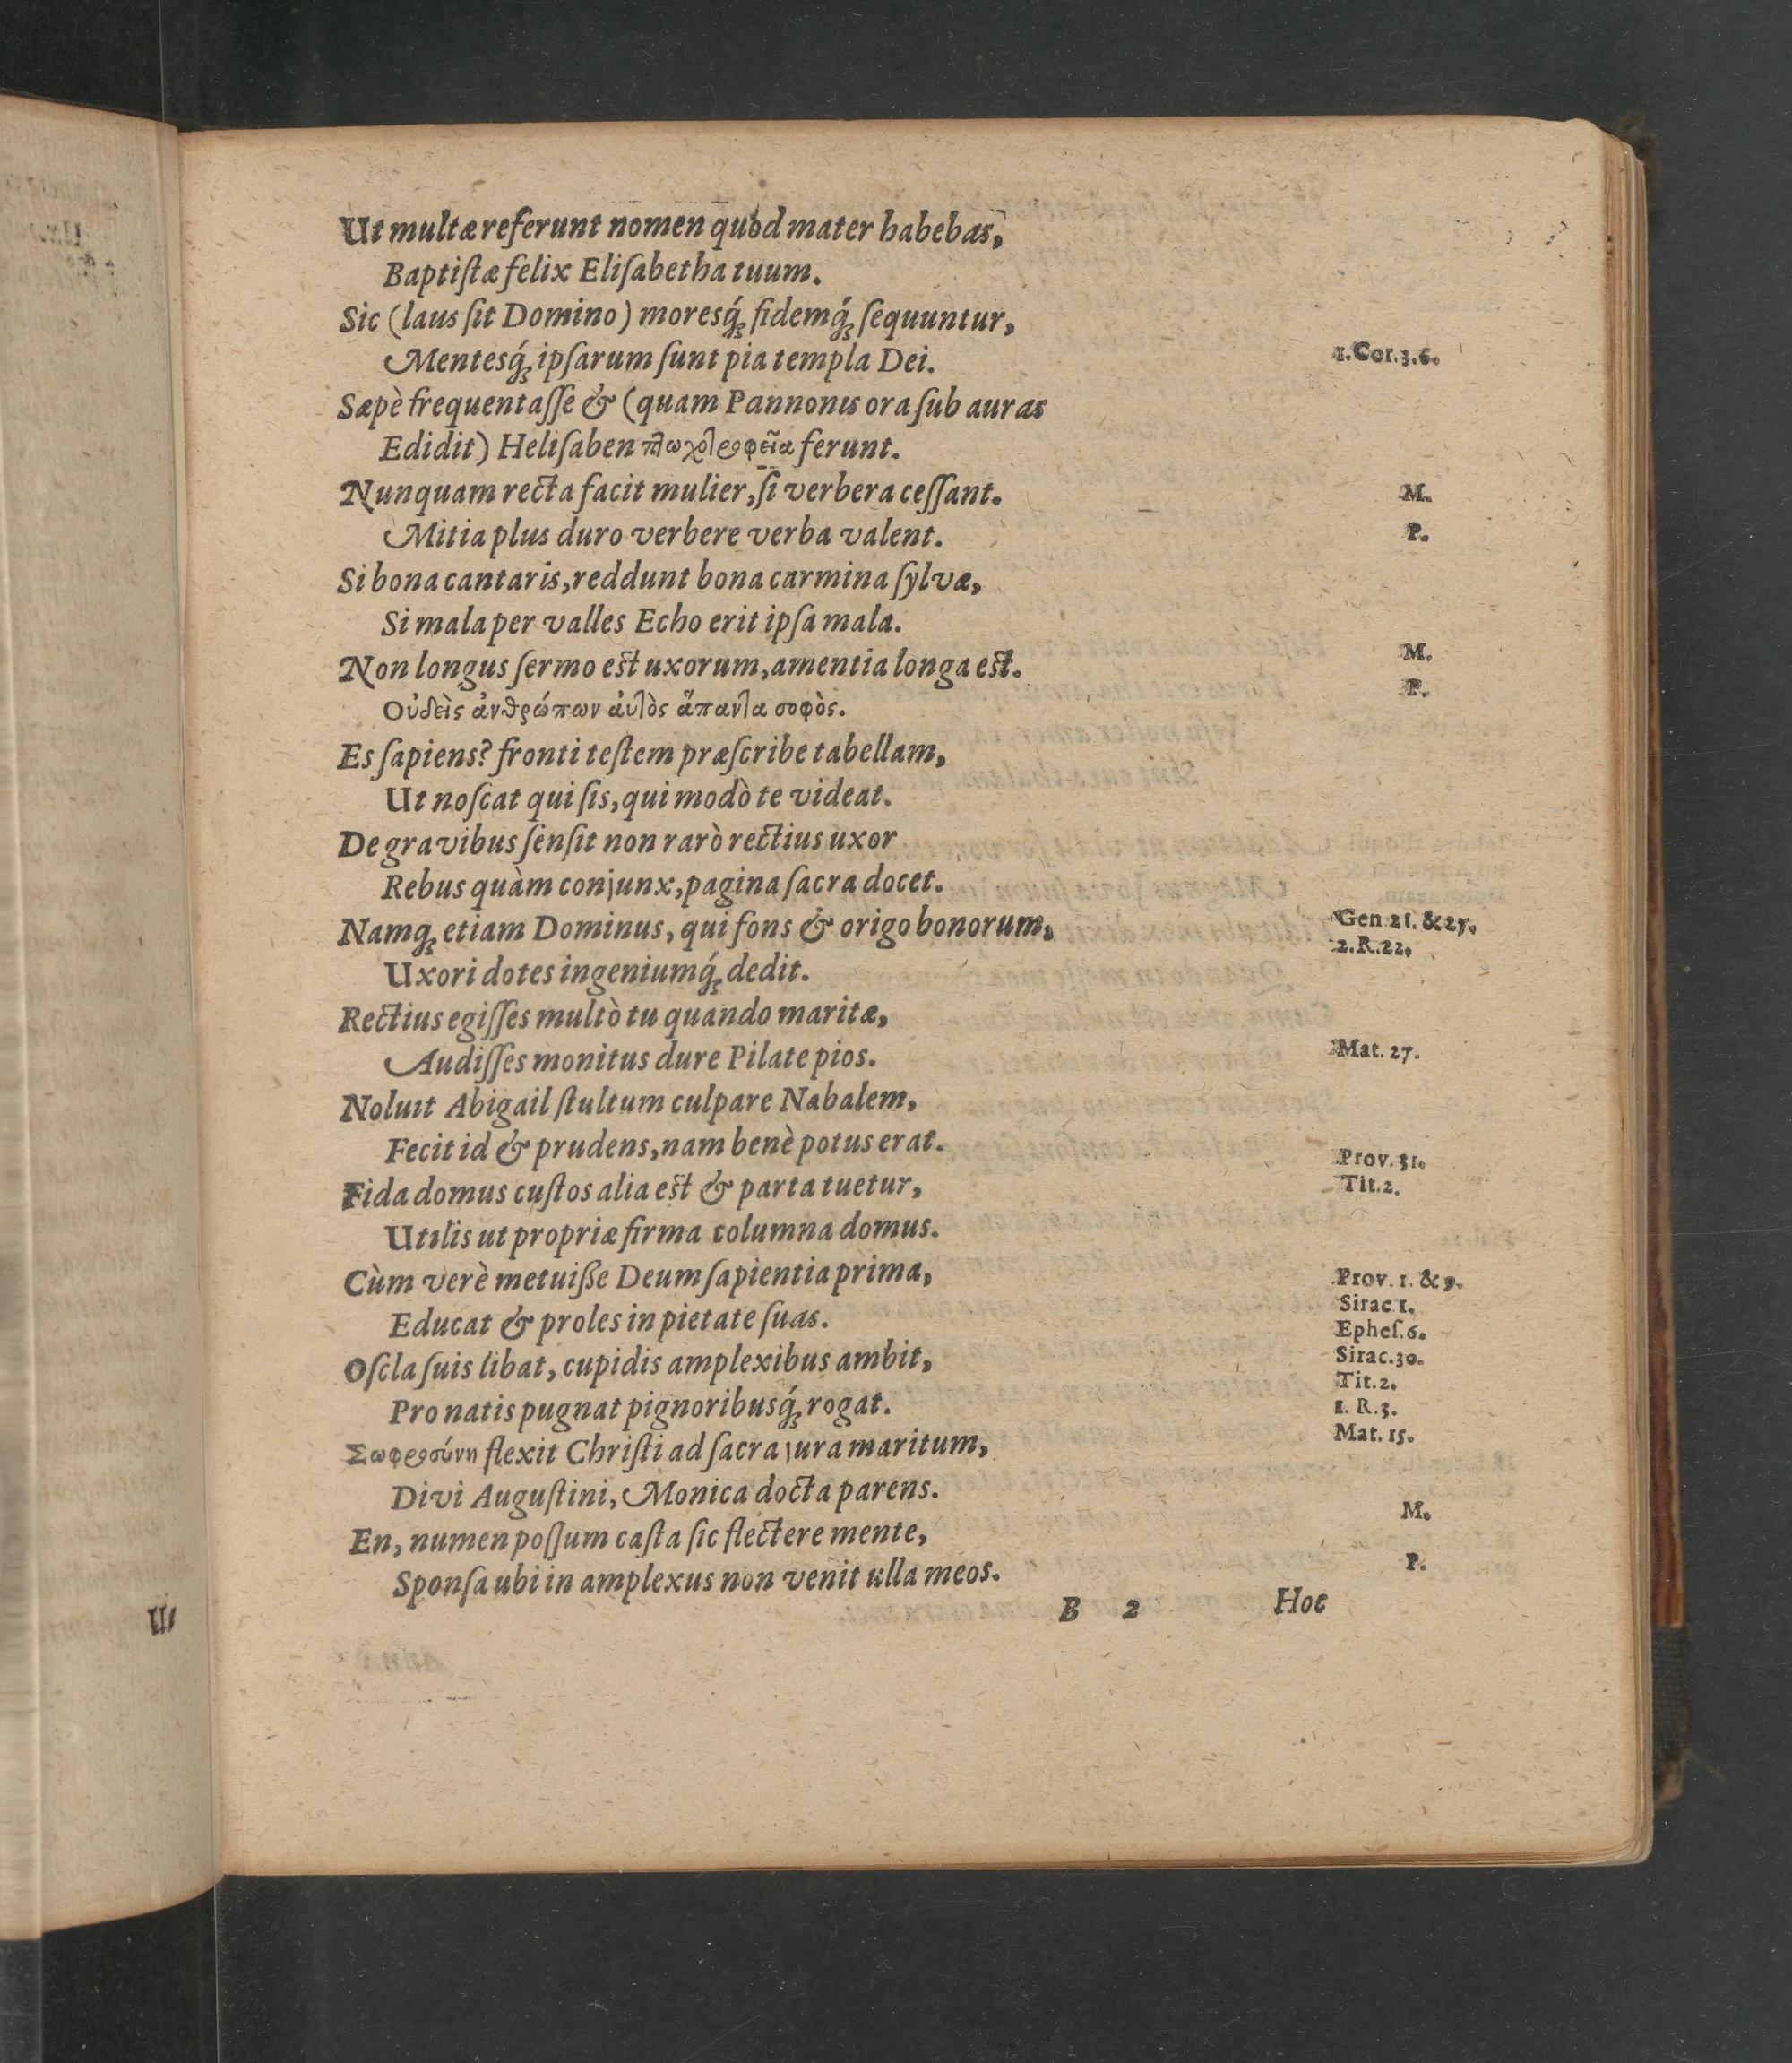 Ut multæ referunt nomen quòd mater habebas,
Baptiſtæ felix Eliſabetha tuum.
Sic (laus ſit Domino) moresq́; fidemq́; ſequuntur,
Mentesq́; ipſarum ſunt pia templa Dei. 1. Cor. 3. 6.
Sæpè frequentaſſe & (quam Pannonis ora ſub auras
Edidit) Heliſaben ferunt.
Nunquam recta facit mulier, ſi verbera ceſſant. M.
Mitia plus duro verbere verba valent. P.
Si bona cantaris, reddunt bona carmina ſylvæ,
Si mala per valles Echo erit ipſa mala.
Non longus ſermo est uxorum, amentia longa est. M.
Οὐδεὶς ἀνθρώπων ἀυτὸς ἅπαντα σοφὸς. P.
Es ſapiens? fronti teſtem præſcribe tabellam,
Ut noſcat qui ſis, qui modò te videat.
De gravibus ſenſit non rarò rectius uxor
Rebus quàm conjunx, pagina ſacra docet.
Namq; etiam Dominus, qui fons & origo bonorum, Gen 21. & 27.
2. R. 22.
Uxori dotes ingeniumq́; dedit.
Rectius egiſſes multò tu quando maritæ,
Audiſſes monitus dure Pilate pios. Mat. 27.
Noluit Abigail ſtultum culpare Nabalem,
Fecit id & prudens, nam benè potus erat.
Prov. 31.
Fida domus cuſtos alia est & parta tuetur, Tit. 2.
Utilis ut propriæ firma columna domus.
Cùm verè metuiße Deum ſapientia prima, Prov. 1. & 9.
Sirac 1.
Educat & proles in pietate ſuas. Epheſ. 6.
Oſcla ſuis libat, cupidis amplexibus ambit, Sirac. 30.
Tit. 2.
Pro natis pugnat pignoribusq́; rogat. 1. R. 3.
Σωφροσύνη flexit Chriſti ad ſacra jura maritum, Mat. 15.
Divi Auguſtini, Monica docta parens.
En, numen poſſum caſta ſic flectere mente, M.
Sponſa ubi in amplexus non venit ulla meos. P.
B 2 Hoc